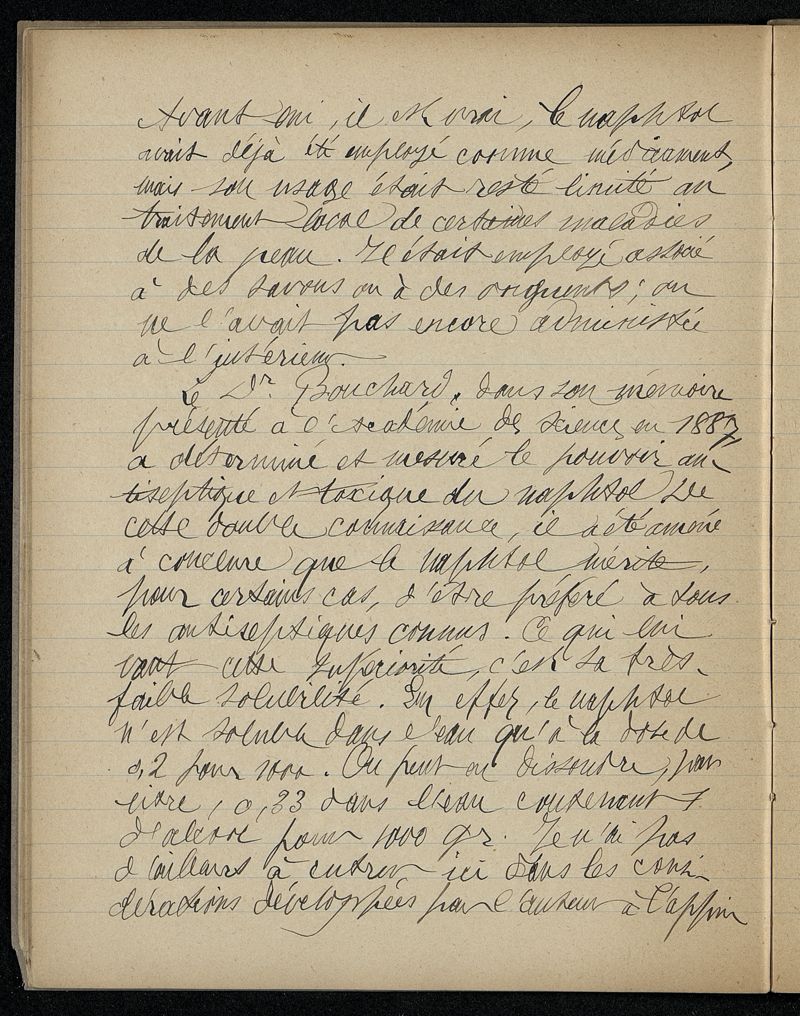 Avant lui, il est vrai, le naphtol
avait déjà été employé comme médicament,
mais son usage était resté limité au
traitement local de certaines maladies
de la peau. Il était employé associé
à des savons ou à des onguents; on
ne l'avait pas encore administré
à l'intérieur.
Le Dr. Bouchard, dans son mémoire
présenté à l'Académie des Sciences en 1887,
a déterminé et mesuré le pouvoir an-
tiseptique et toxique du naphtol De
cette double connaissance, il a été amené
à conclure que le naphtol mérite,
pour certains cas, d'être préféré à tous
les antiseptiques connus. Ce qui lui
vaut cette supériorité, c'est sa très-
faible solubilité. En effet, le naphtol
n'est soluble dans l'eau qu'à la dose de
0,2 pour 1000. On peut en dissoudre, par
litre, 0,33 dans l'eau contenant 1
d'alcool pour 1000 gr. Je n'ai pas
d'ailleurs à entrer ici dans les consi-
dérations développées par l'auteur à l'appui